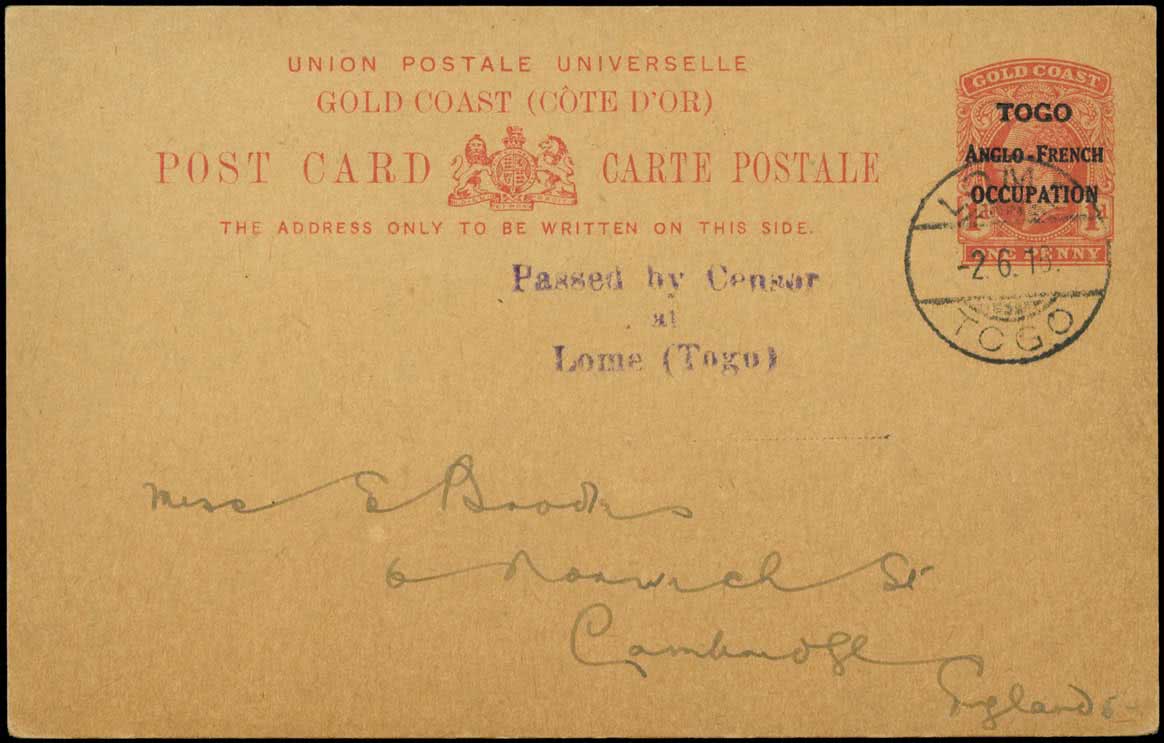 UNION POSTALE UNIVERSELLE
GOLD COAST (CÔTE D'OR)
POST CARD CARTE POSTALE
THE ADDRESS ONLY TO BE WRITTEN ON THIS SIDE.
GOLD COAST
TOGO
ANGLO-FRENCH
OCCUPATION
1d
ONE PENNY
LOME
-2.6.16.
TOGO
Passed by Censor
at
Lome (Togo)
Miss E Brooks
6 Norwich St
Cambridge
England